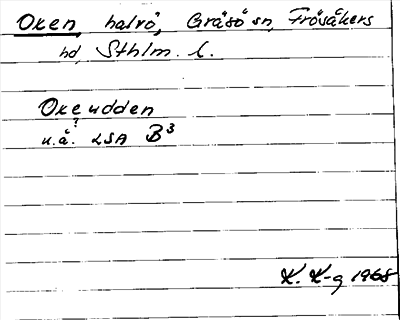 Oken, halvö, Gräsö sn, Frösåkers
hd, Sthlm. l.
Okeudden
?
u.å. LSA B³
K. K-g 1968